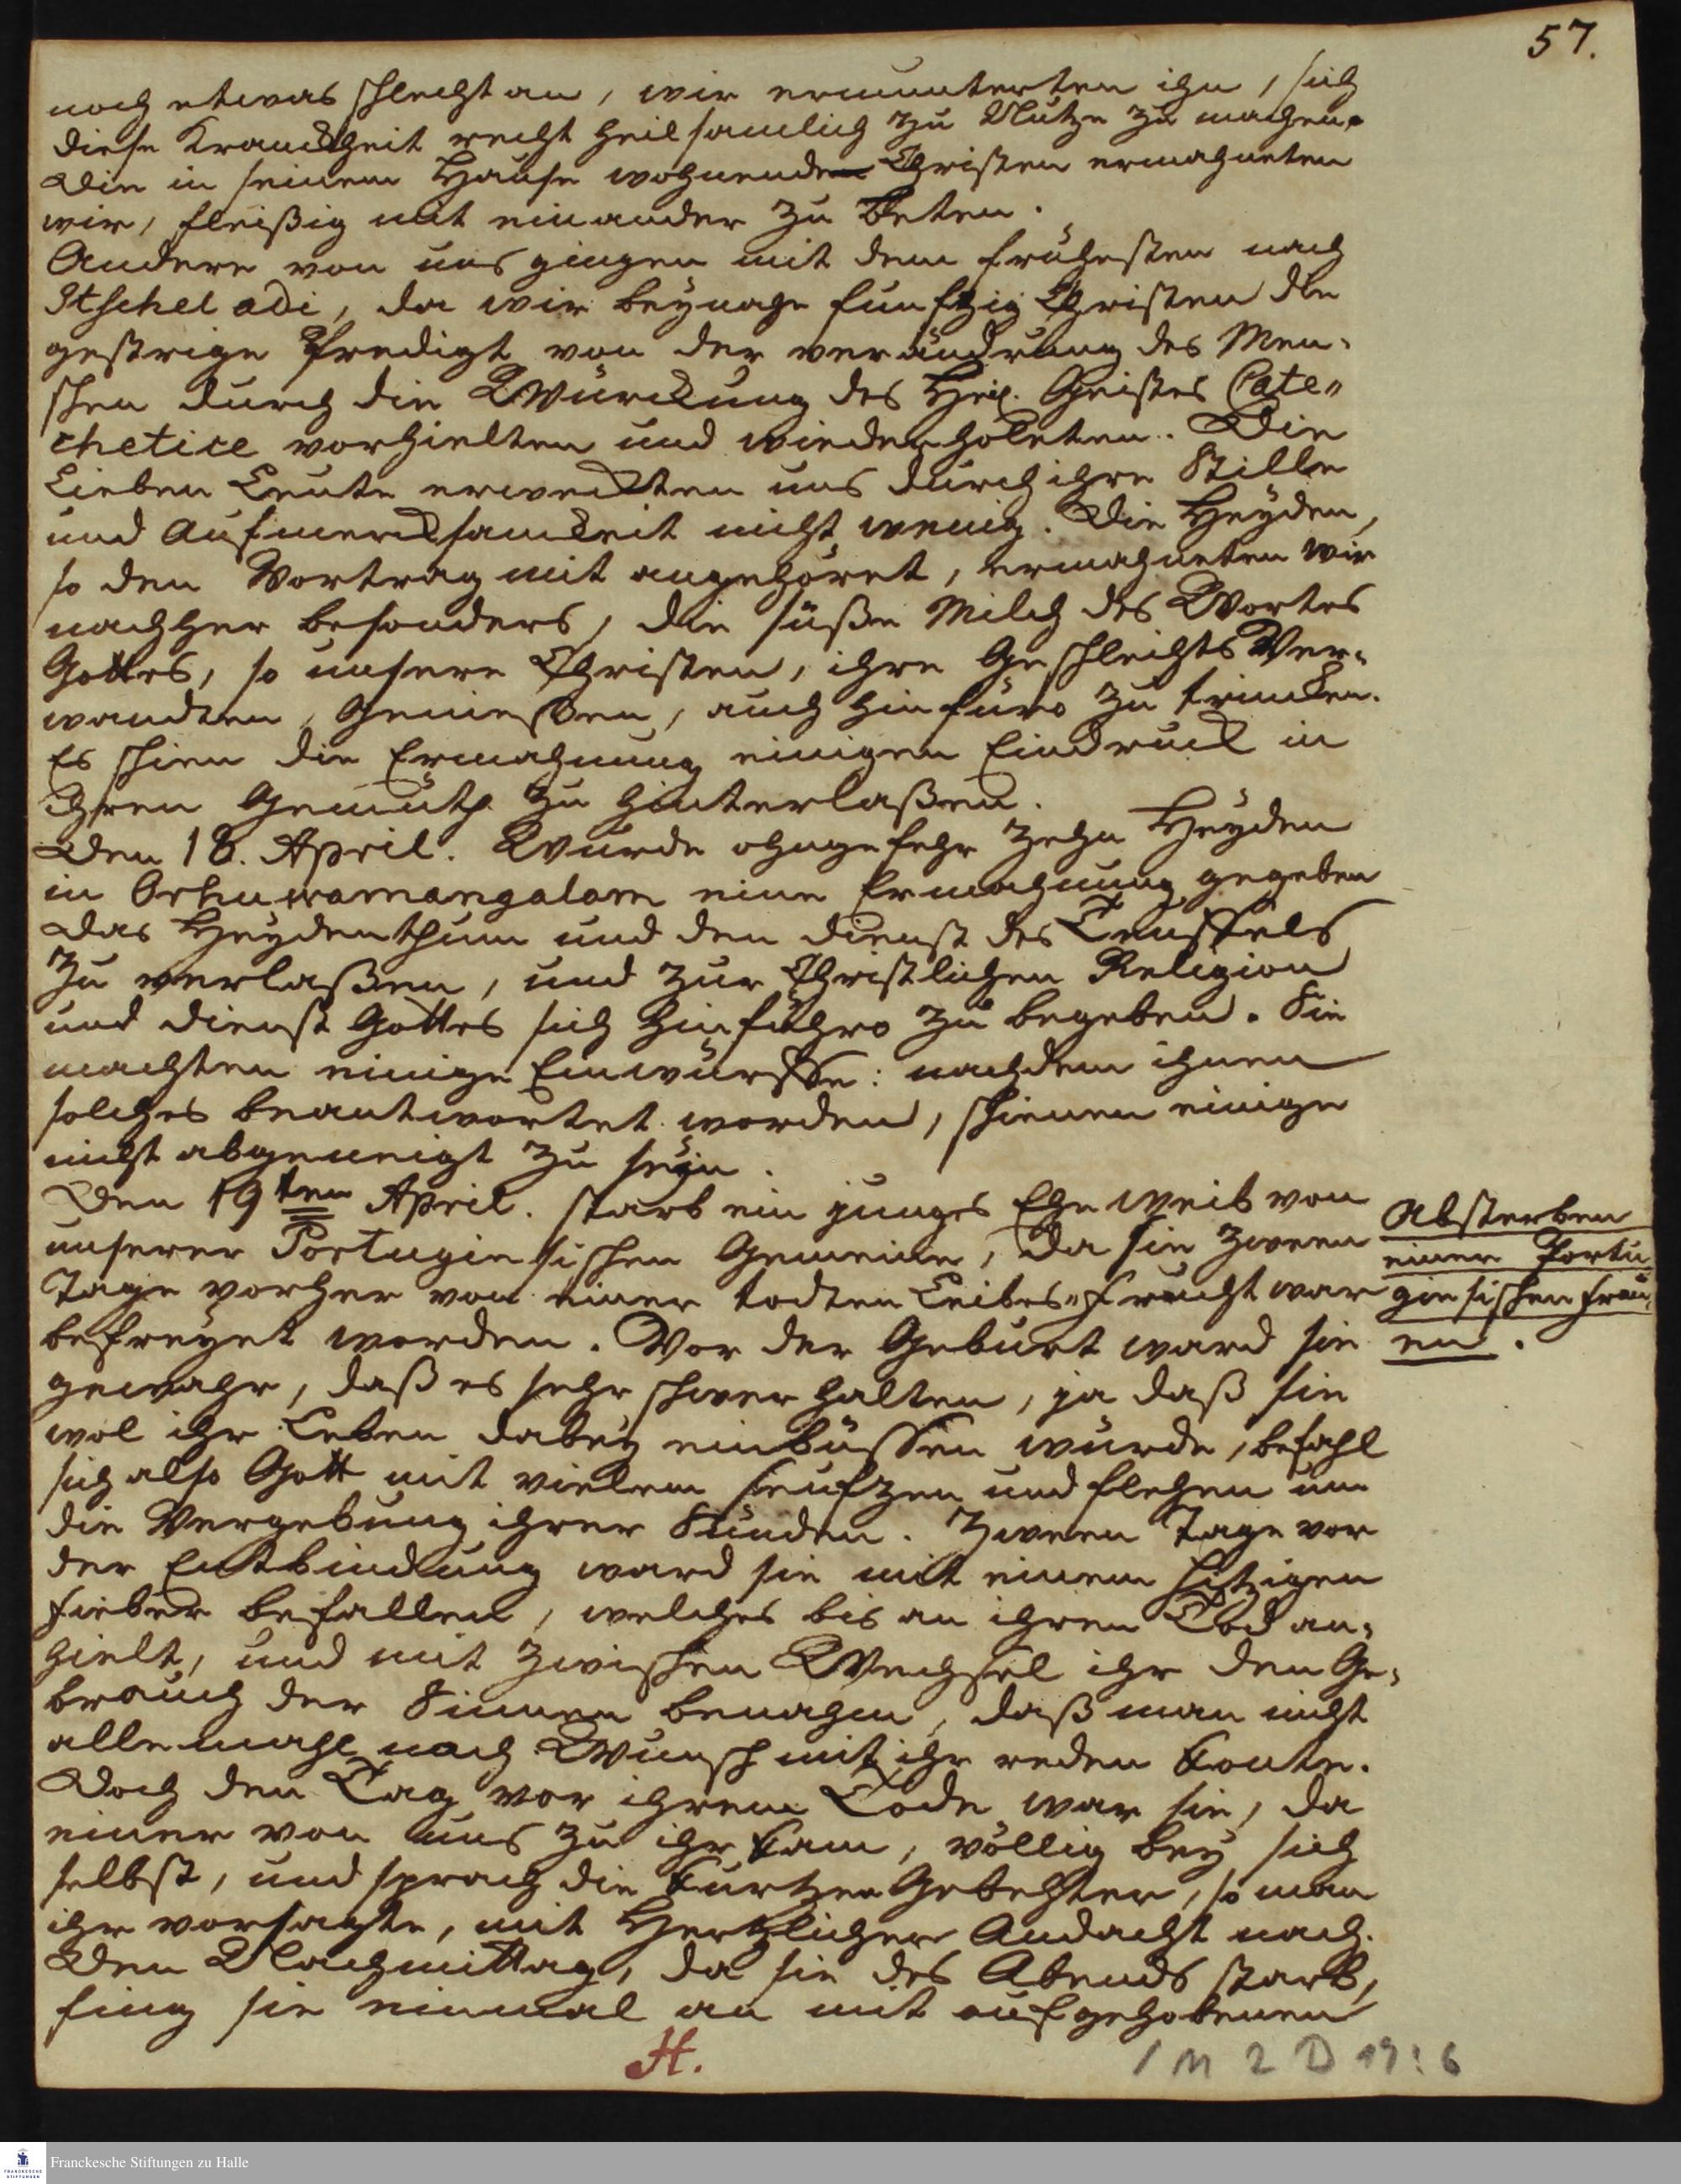 57.
noch etwas schlecht an, wir ermunterten ihn, sich
diese Kranckheit recht heilsamlich zu Nutze zu machen.
Die in seinem Hause wohnende Christen ermahneten
wir, fleißig mit einander zu beten.
Andere von uns gingen mit dem frühesten nach
Itschel adi, da wir beynahe funftzig Christen die
gestrige Predigt von der verändrung des Men-
schen durch die Würckung des Heil. Geistes Cate-
chetice vorhielten und wiederholeten. Die
Lieben Leute erweckten uns durch ihre Stille
und Aufmercksamkeit nicht wenig. Die Heyden,
so den Vortrag mit angehöret, ermahneten wir
nachher besonders, die süße Milch des Wortes
Gottes, so unsere Christen, ihre Geschlechts Ver-
wandten, geniessen, auch hinfüro zu trincken.
Es schien die Ermahnung einigen Eindruck in
Ihren Gemüth zu hinterlaßen.
Den 18. April. Wurde ohngefehr zehn Heyden
in Orhuwamangalam eine Ermahnung gegeben
das Heydenthum und den dienst des Teuffels
zu verlaßen, und zur Christlichen Religion
und dienst Gottes sich hinführo zu begeben. Sie
machten einige Einwürffe: nachdem ihnen
solches beantwortet worden, schienen einige
nicht abgeneigt zu seyn.
Den 19ten April. starb ein junges Eheweib von
unserer Portugiesischen Gemeine, da sie zween
Tage vorher von einer todten Leibes-Frucht war
befreyet worden. Vor der Geburt ward sie
gewahr, daß es sehr schwer halten, ja daß sie
wol ihr Leben dabey einbüssen würde, befahl
sich also Gott mit vielem seufzen und flehen um
die Vergebung ihrer Sünden. Zween Tage vor
der Entbindung ward sie mit einem hitzigen
Fieber befallen, welches bis an ihren Tod an-
hielt, und mit zwischen Wechsel ihr den Ge-
brauch der Sinnen benahm, daß man nicht
allemahl nach Wunsch mit ihr reden konte.
Doch den Tag vor ihrem Tode war sie, da
einer von uns zu ihr kam, völlig bey sich
selbst, und sprach die kurtzen Gebehter, so man
ihr vorsagte, mit Hertzlicher Andacht nach.
Den Nachmittag, da sie des Abends starb,
fing sie einmal an mit aufgehobenen
Absterben
einer Portu
giesischen Frau-
en.
H.
1 M 2 D 19:6
Franckesche Stiftungen zu Halle
FRANCKESCHE
STIFTUNGEN